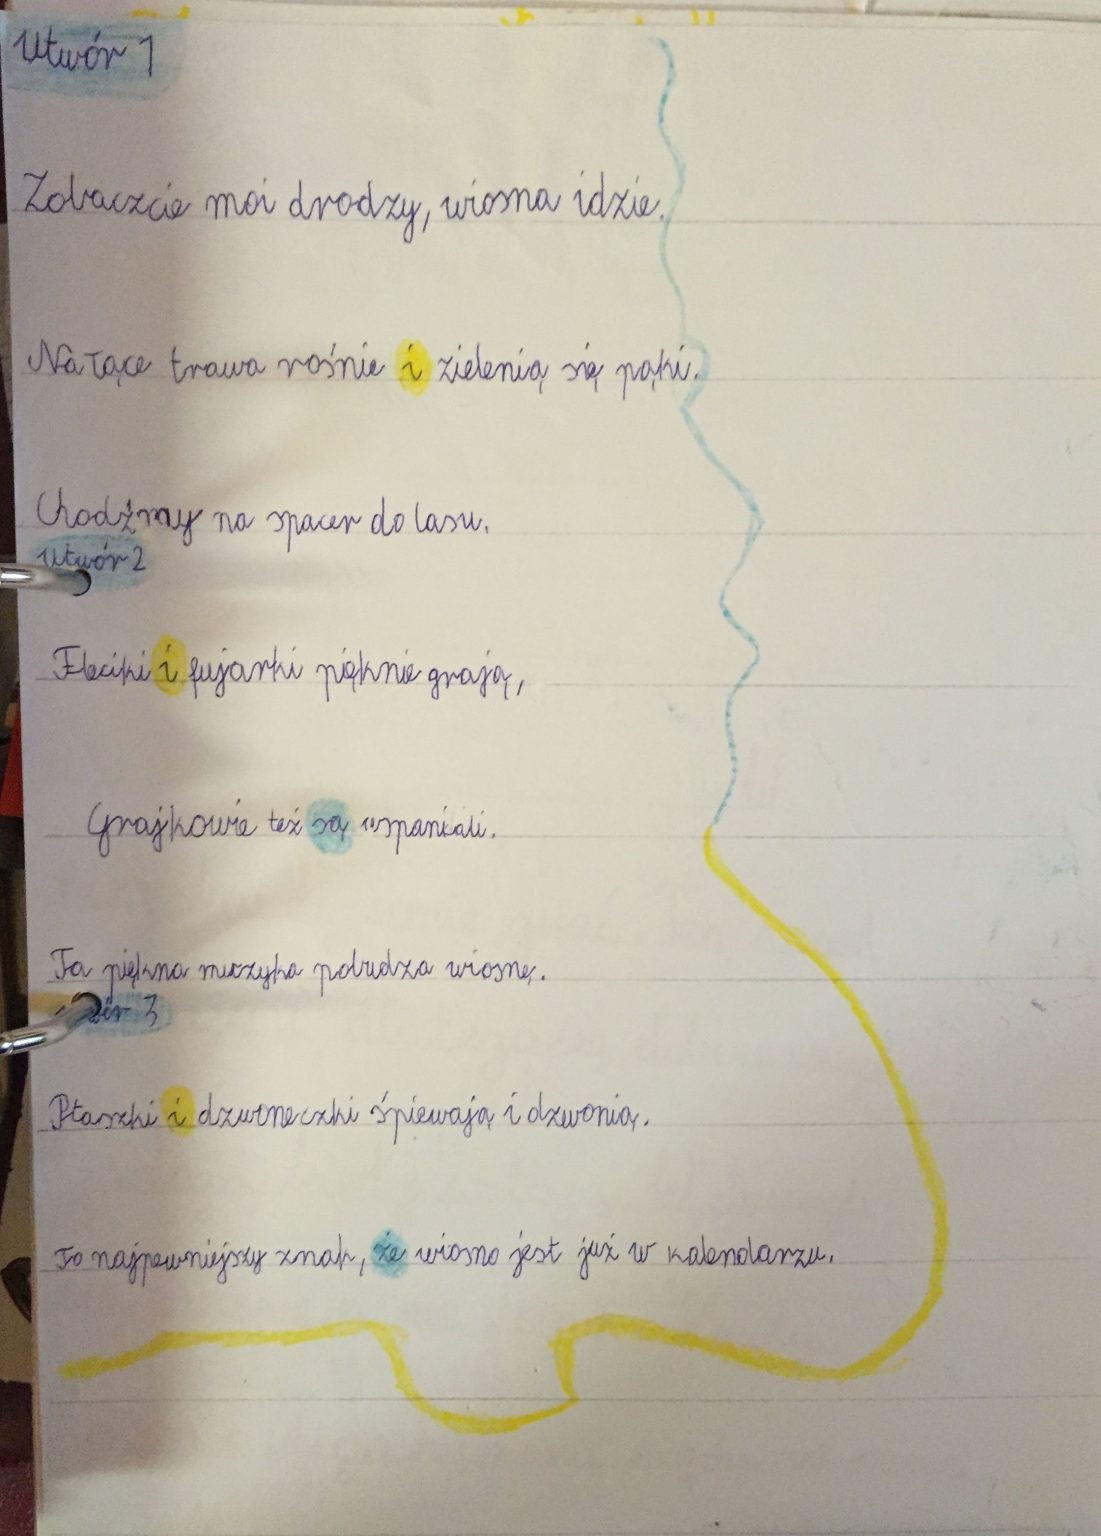 Utwór 1
Zobaczcie moi drodzy, wiosna idzie.
Na łące trawa rośnie i zielenią się pąki.
Chodźmy na spacer do lasu.
Utwór 2
Fleciki i fujarki pięknie grają,
Grajkowie też są wspaniali.
Ta piękna muzyka pobudza wiosnę.
3
Ptaszki i dzwoneczki śpiewają i dzwonią.
To najpewniejszy znak, że wiosna jest już w kalendarzu.